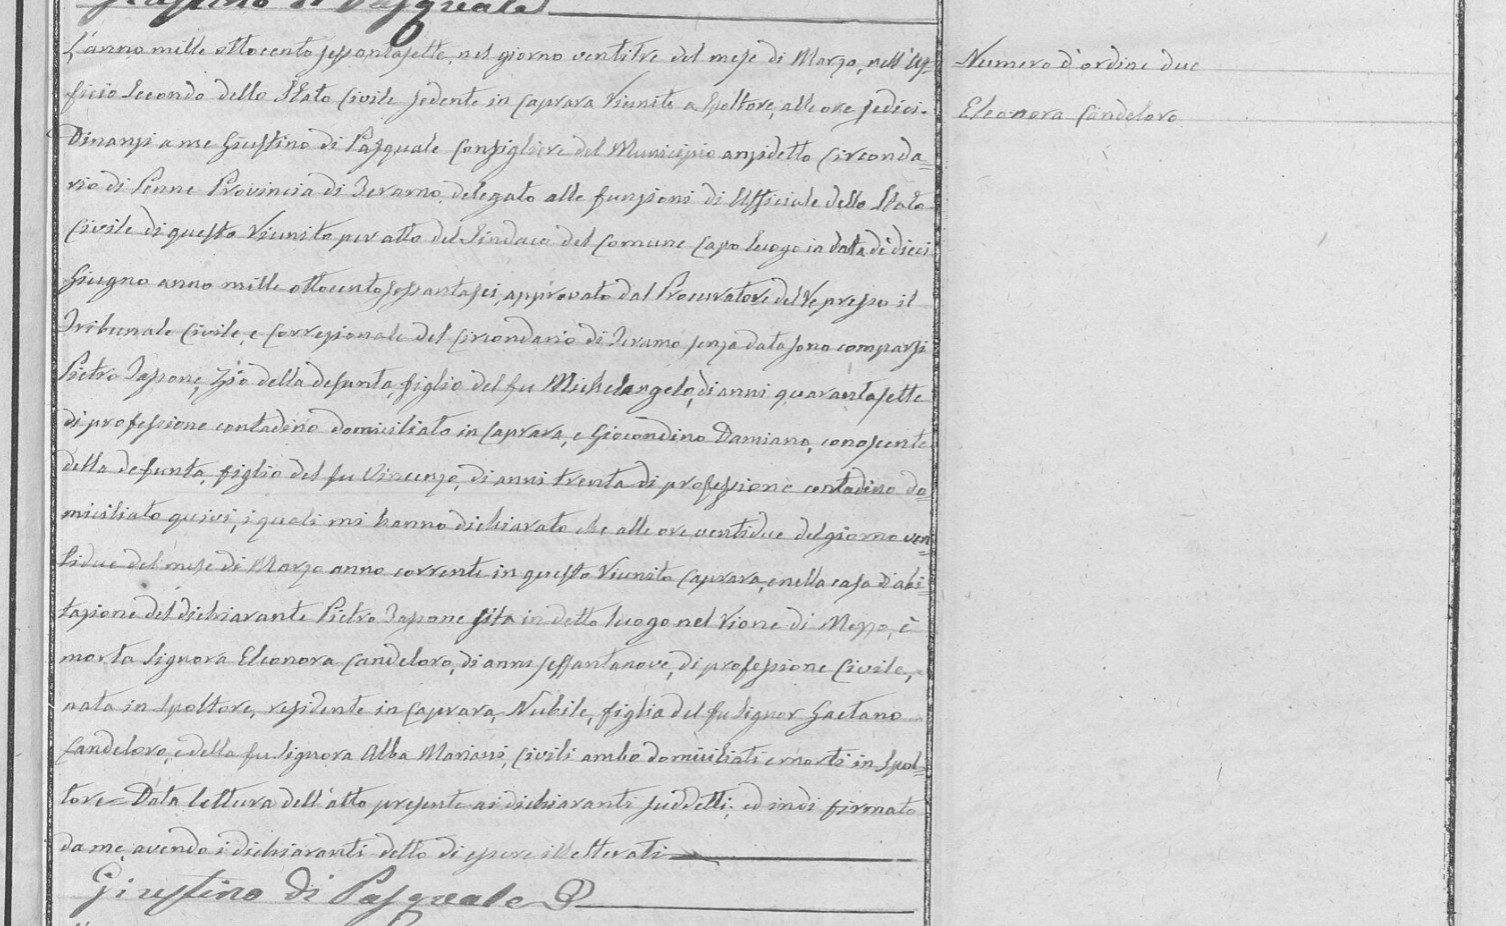 Giustino di Pasquale
L'anno mille ottocento sessantasette, nel giorno ventitre del mese di Marzo, nell'Uf=
ficio Secondo dello Stato Civile sedente in Caprara Riunito a Spoltore, alle ore sedici.
Dinanzi a me Giustino di Pasquale Consigliere del Municipio anzidetto Circonda=
rio di Penne Provincia di Teramo, delegato alle funzioni di Uffiziale dello Stato
Civile di questo Riunito per atto del Sindaco del Comune Capo luogo in data de' dieci
Giugno anno mille ottocento sessantasei, approvato dal Procuratore del Re presso il
Tribunale Civile, e Correzionale del Circondario di Teramo senza data sono comparsi
Pietro Tappone, Zio della defunta, figlio del fu Michelangelo, di anni quarantasette
di professione contadino domiciliato in Caprara, e Giocondino Damiano, conoscente
della defunta, figlio del fu Vincenzo, di anni trenta di professione contadino do=
miciliato quivi, i quali mi hanno dichiarato che alle ore ventidue del giorno ven=
tidue del mese di Marzo anno corrente in questo Riunito Caprara, e nella casa d'abi=
tazione del dichiarante Pietro sita in detto luogo nel Rione di Mezzo, è
morta Signora Eleonora Candeloro, di anni sessantanove, di professione Civile,
nata in Spoltore, residente in Caprara, Nubile, figlia del fu Signor Gaetano
Candeloro, e della fu Signora Alba Mariani, Civili ambo domiciliati e morti in Spol=
tore = Data lettura dell'atto presente ai dichiaranti suddetti, ed indi firmato
da me, avendo i dichiaranti detto di essere illetterati
Giustino di Pasquale
Numero d'ordine due
Eleonora Candeloro